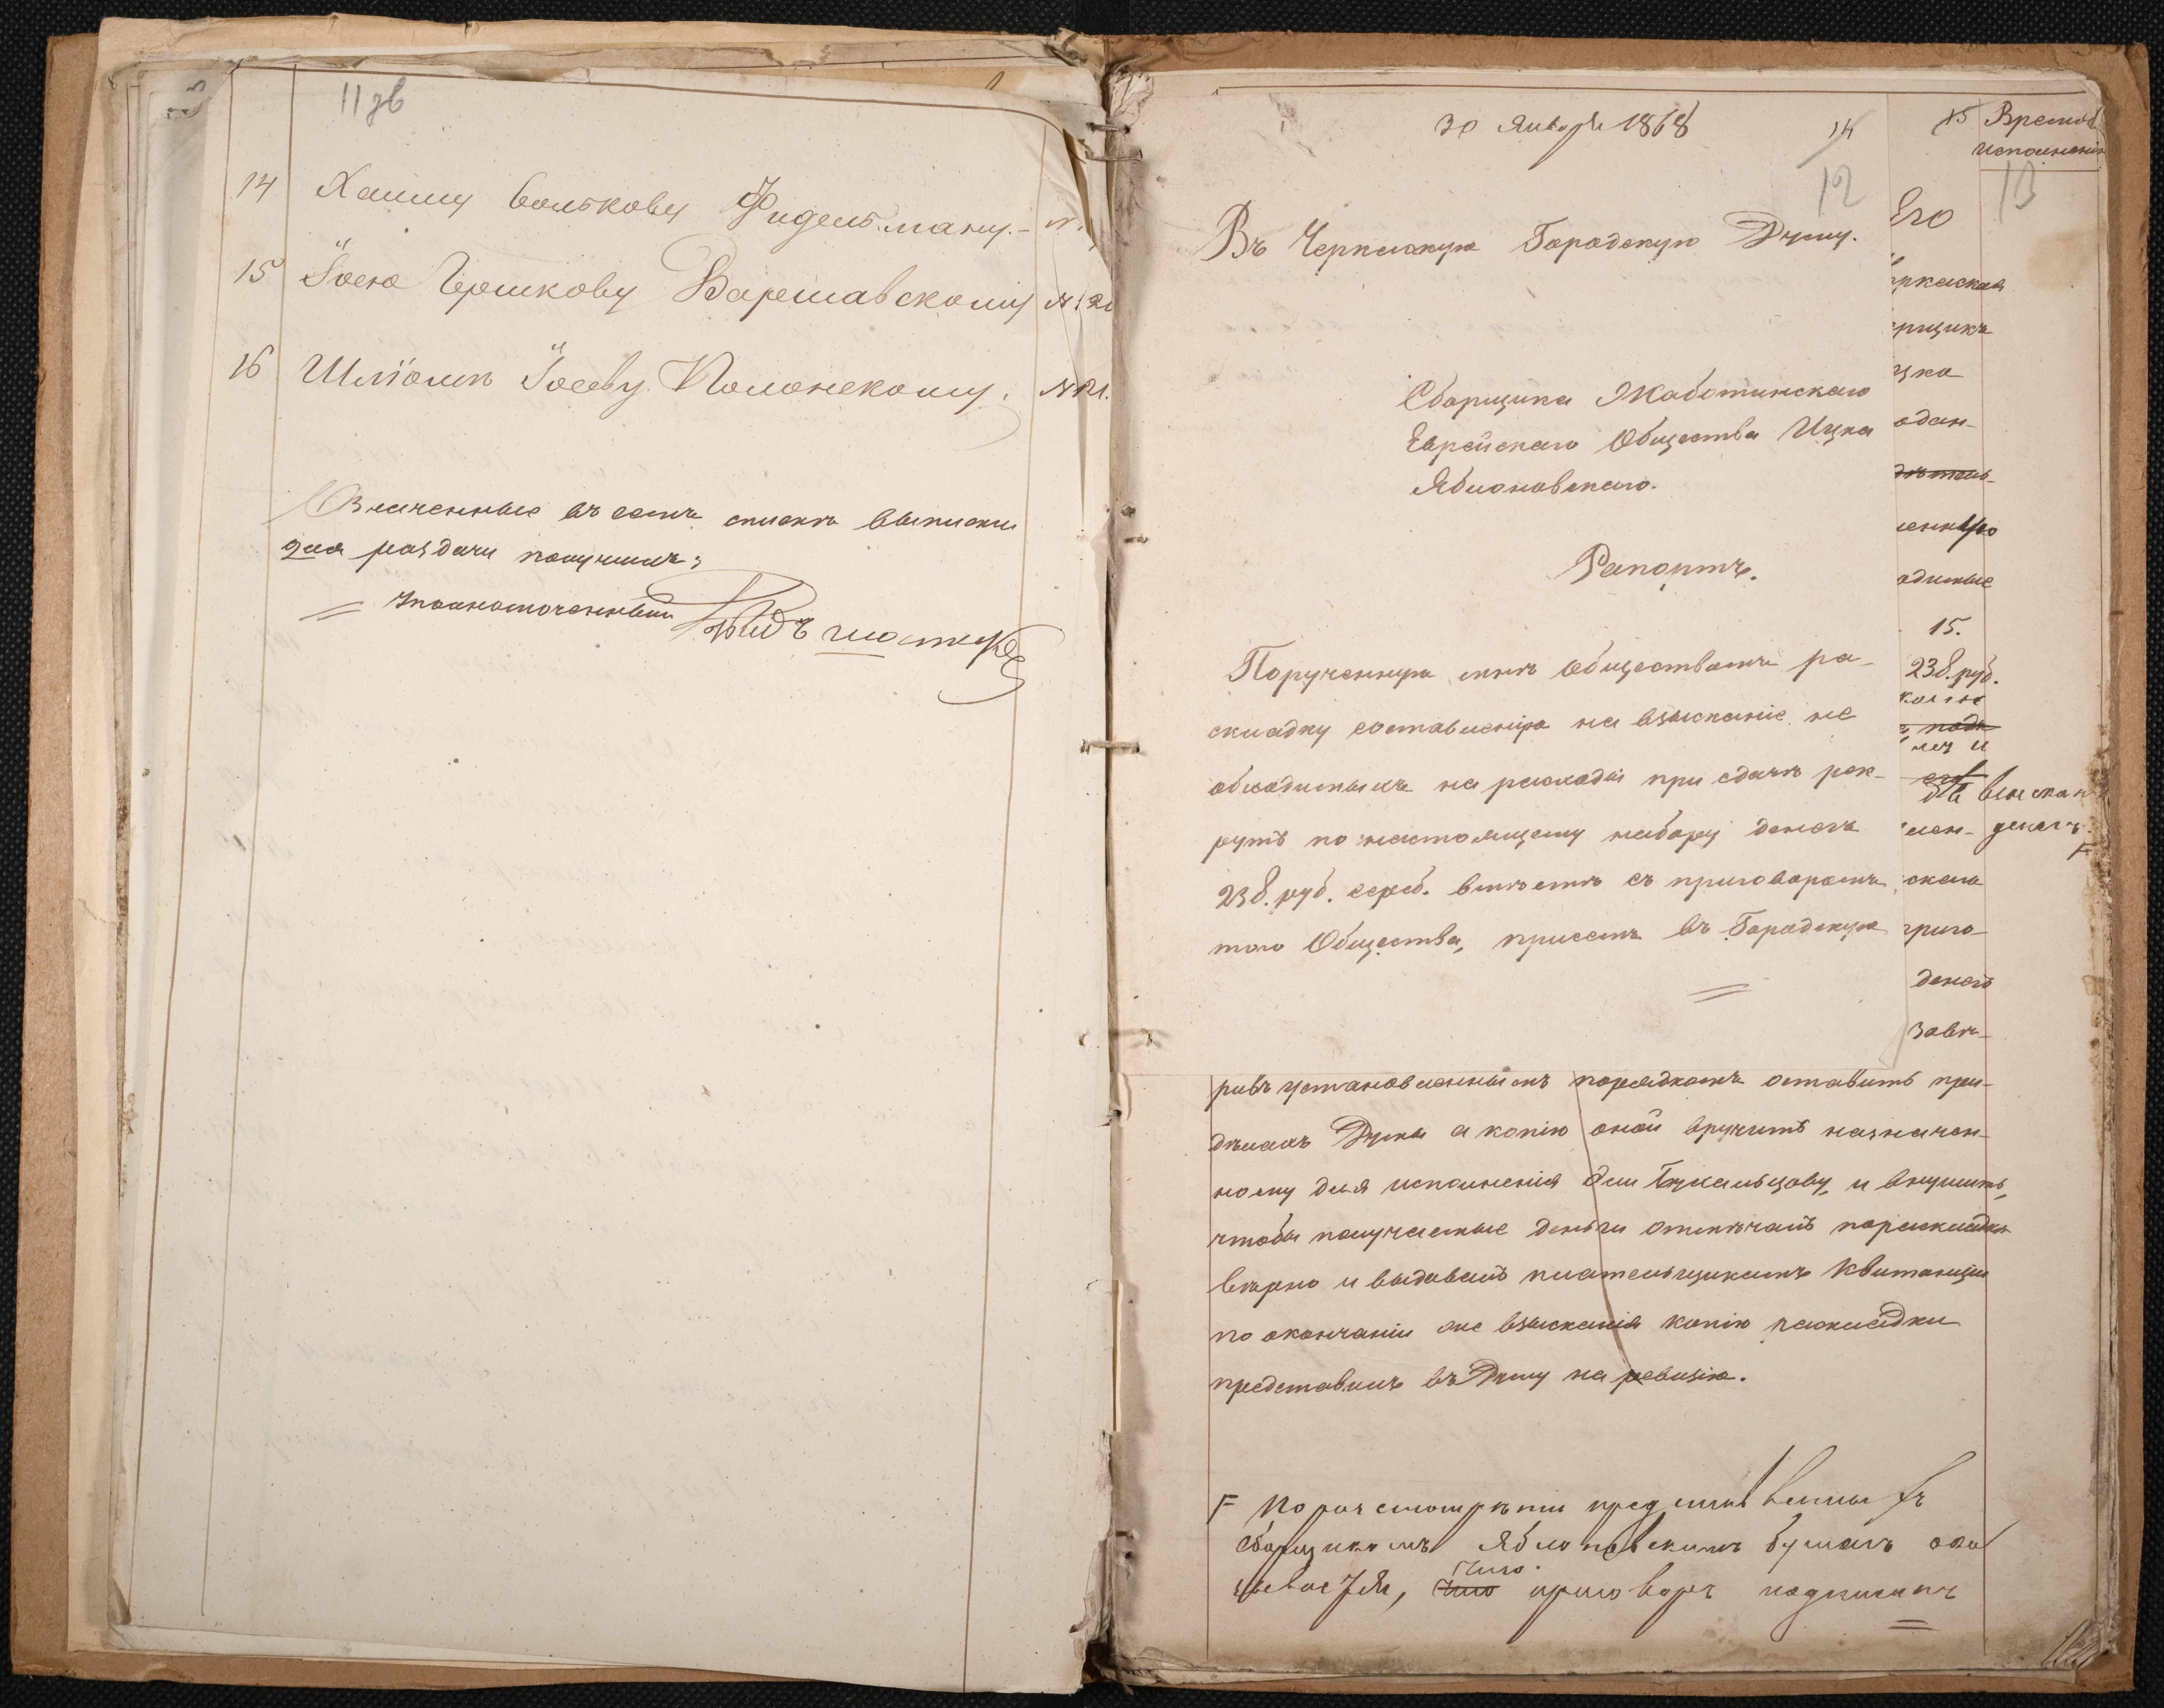 11 зв
14 Хаиму Волькову Фидельману.
15 Іосю Гершкову Варшавскому № 21
16 Шліомѣ Іосеву Полонскому. № 21.
Значенные въ семъ спискѣ выписки
для раздачи получилъ:
уполномоченный
30 Января 1868
14
12
Въ Черкаскую Городскую Думу.
Сборщика Жаботинскаго
Еврейскаго Общества Ицка
Яблоновскаго.
Рапортъ.
Порученную мнѣ обществомъ ра-
складку составленую на взысканіе не
обходимыхъ на расходы при сдачѣ рек-
рутъ по настоящему набору денегъ
238. руб. сереб. вмѣстѣ съ приговоромъ
того Общества, при семъ въ Городскую
15 Время
исполненія
13
Его
еркаская
орщикъ
цка
одан-
дѣтель-
ленную
одимые
15.
238. руб.
подъ
и
взыскан
лен- денегъ
скаго
приго-
денегъ
завѣ-
ривъ установленнымъ порядкомъ оставить при
дѣлахъ Думы а копію оной вручить назначен-
ному для исполненія и внушить,
чтобы получаемые деньги отмѣчалъ пораскладкѣ
вѣрно и выдавалъ плательщикамъ квитанціи
по окончаніи же взысканія копію раскладки
представилъ въ Думу на ревизію.
F По разсмотрѣніи представленныхъ
сборщикомъ Яблоновскимъ бумагъ ока
зывается, что что приговоръ подписанъ